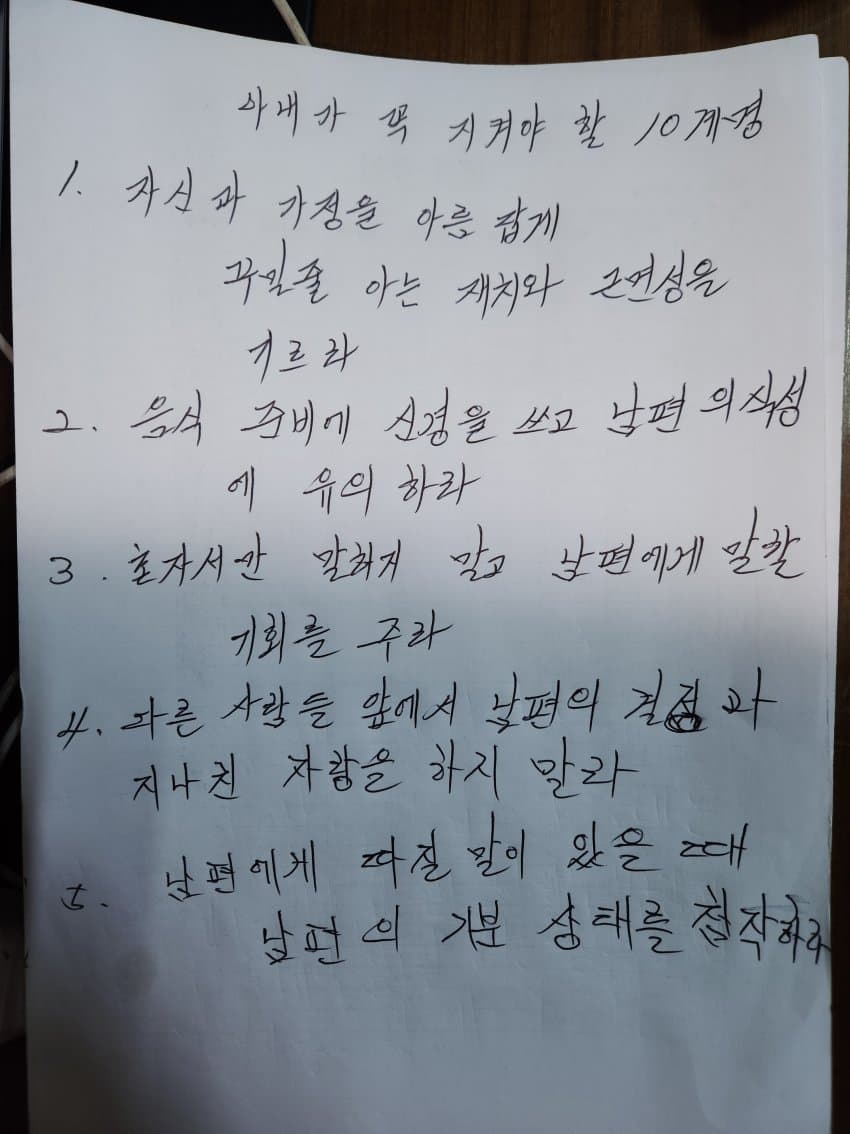 아내가 꼭 지켜야 할 10계경
1. 자신과 가정을 아름답게
꾸밀줄 아는 재치와 근면성을
기르라
2. 음식 준비에 신경을 쓰고 남편의 식성
에 유의 하라
3. 혼자서만 말하지 말고 남편에게 말할
기회를 주라
4. 다른 사람들 앞에서 남편의 결점과
지나친 자랑을 하지 말라
5. 남편에게 따질 말이 있을 때
남편의 기분 상태를 참작하라